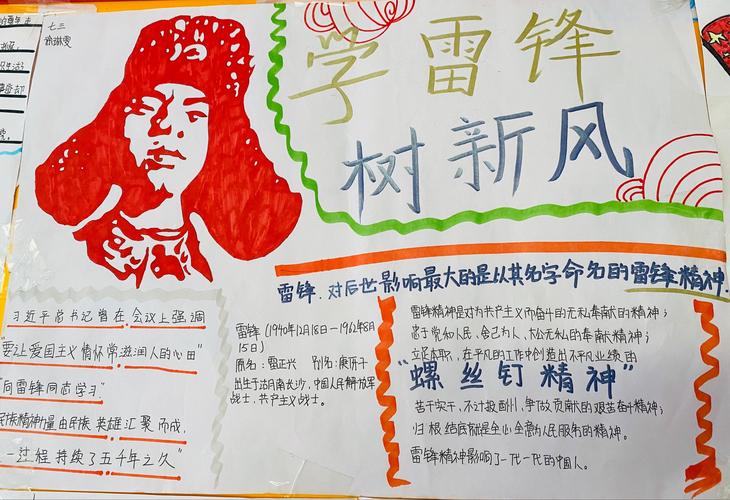 七三
学雷锋
树新风
雷锋，对后世影响最大的是以其名字命名的雷锋精神.
习近平总书记曾在会议上强调
"要让爱国主义情怀常滋润人的心田"
"向雷锋同志学习"
民族精神力量由民族英雄汇聚而成，
一过程持续了五千年之久"
雷锋(1940年12月18日—1962年8月
15日)
原名：雷正兴 别名：庚伢子
出生于湖南长沙，中国人民解放军
战士，共产主义战士。
雷锋精神是对为共产主义而奋斗的无私奉献的精神；
忠于党和人民、舍己为人、大公无私的奉献精神；
立足本职、在平凡的工作中创造出不平凡业绩的
"螺丝钉精神"
苦干实干、不计报酬、争做贡献的艰苦奋斗精神；
归根结底就是全心全意为人民服务的精神。
雷锋精神影响了一代一代的中国人。